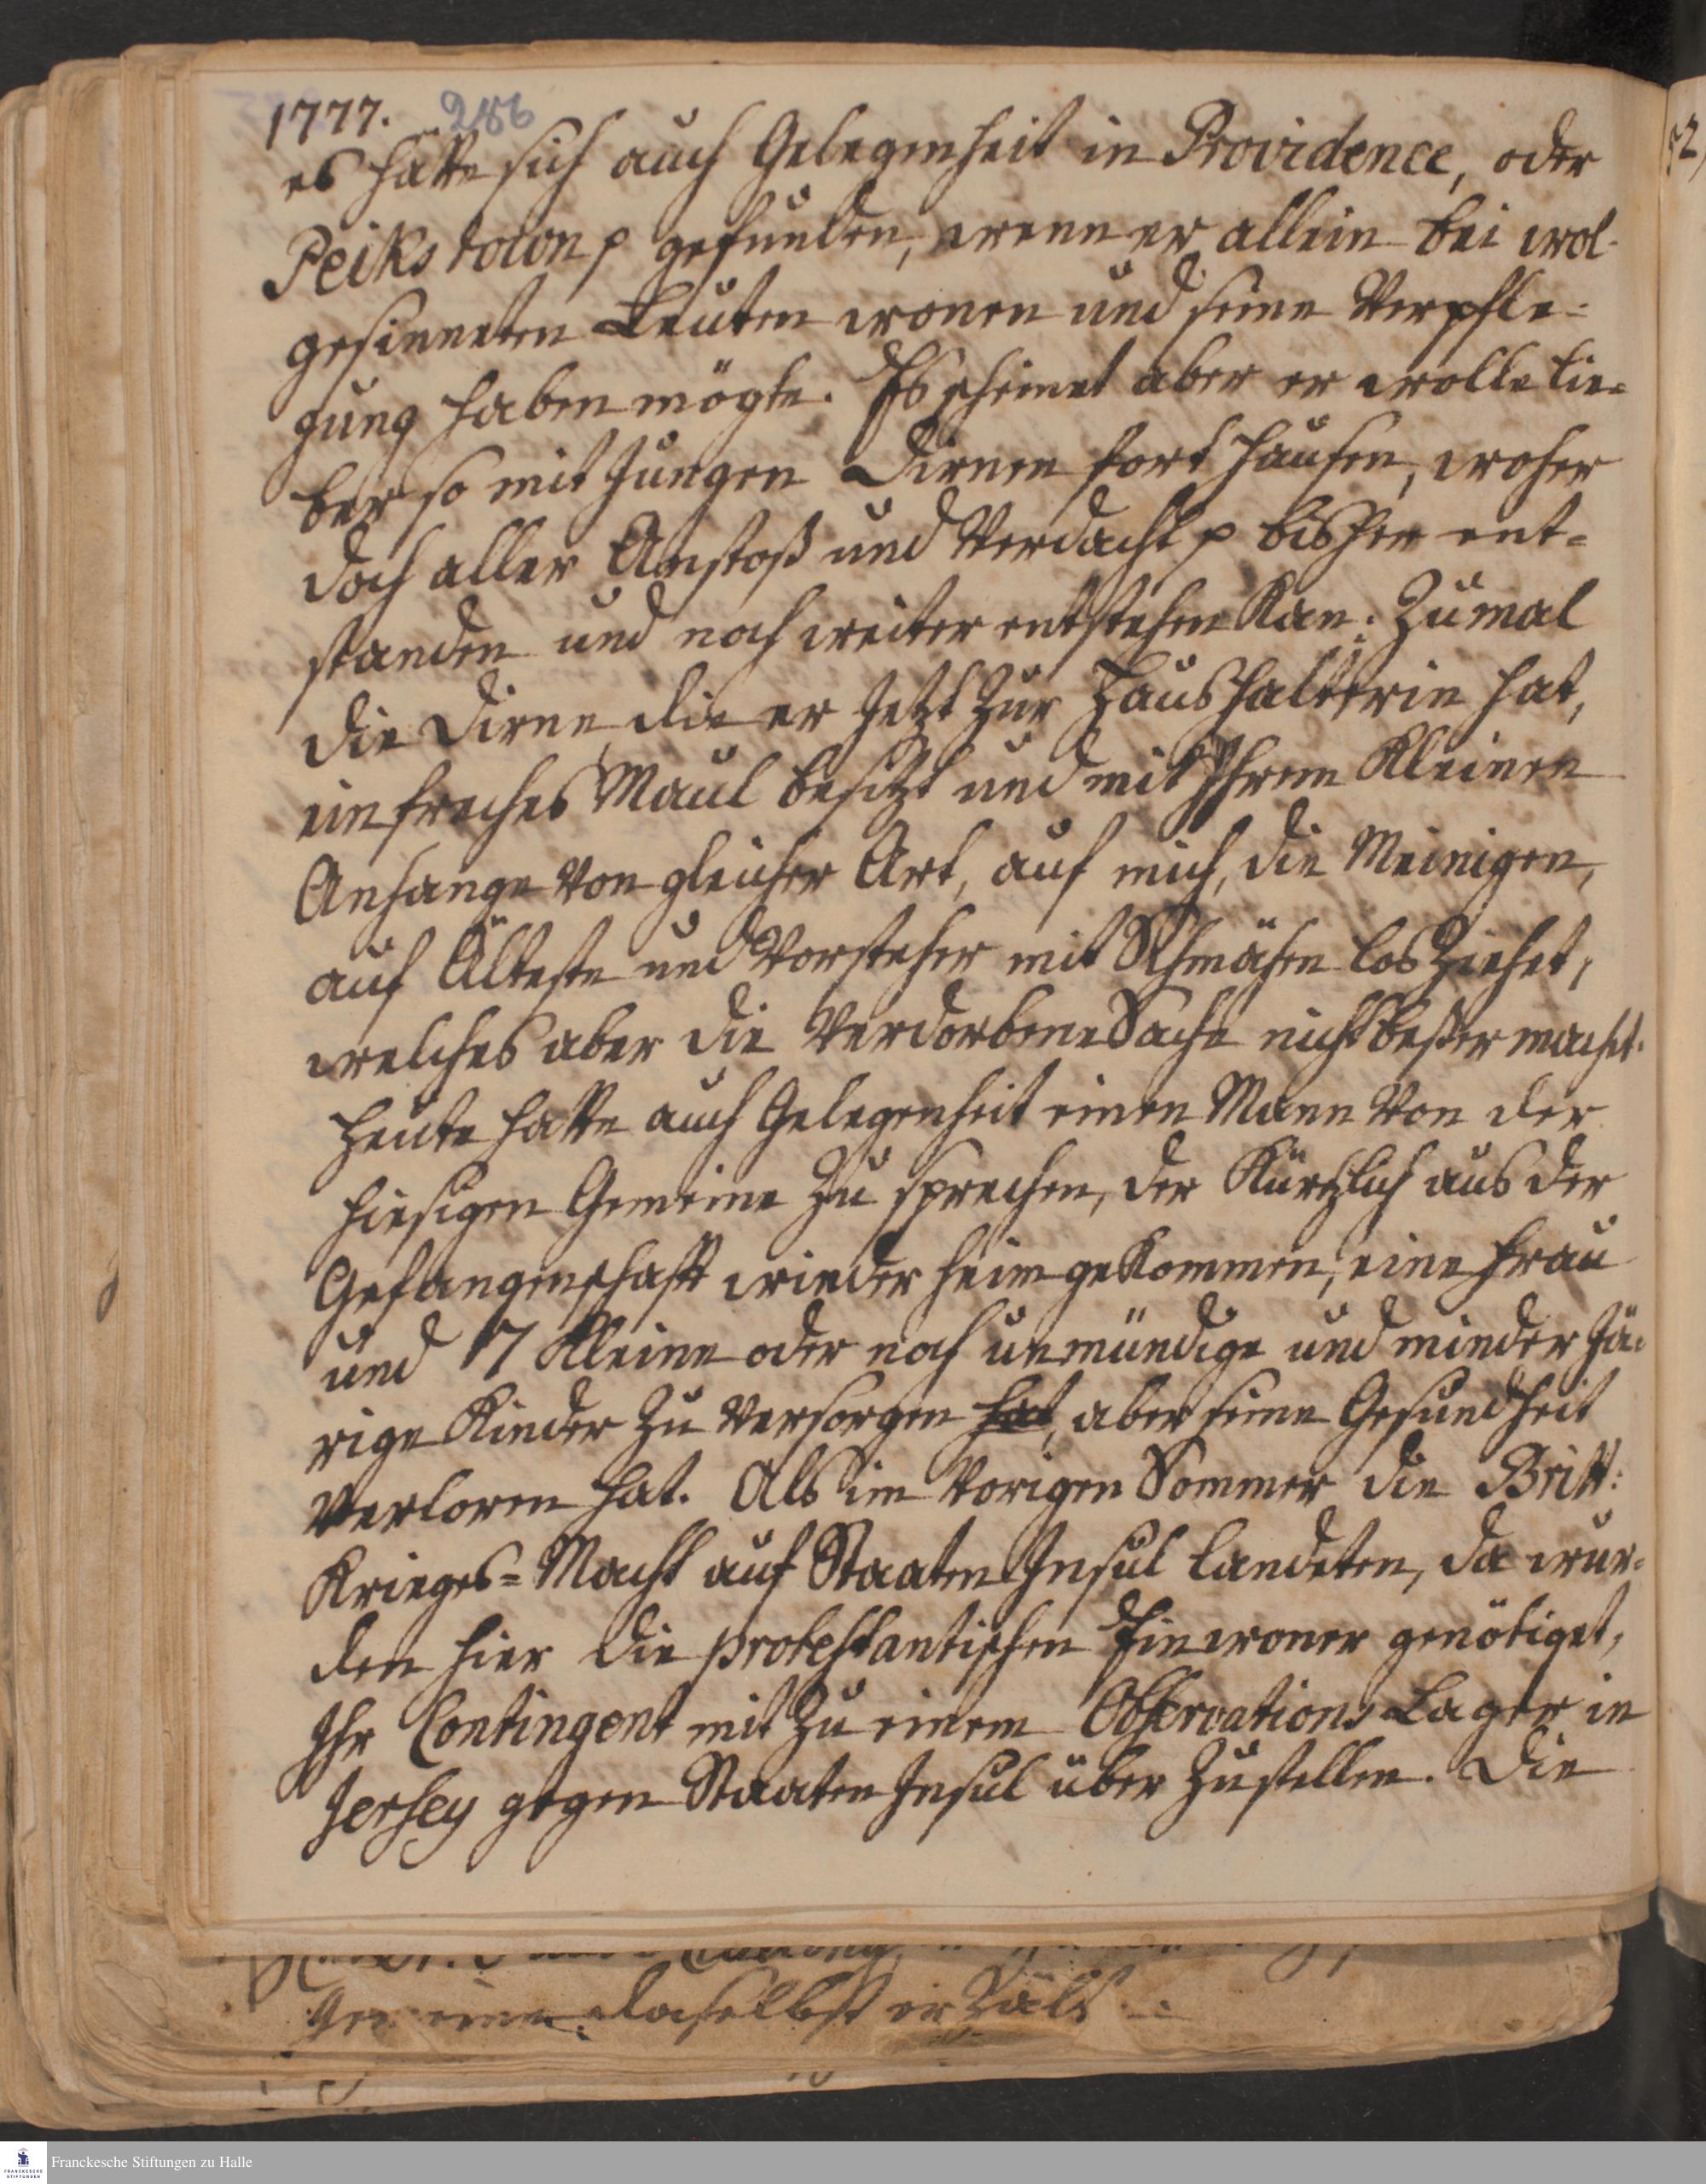 1777. 286
es hätte sich auch Gelegenheit in Providence, oder
Peikstown p gefunden, wenn er allein bei wol-
gesinneten Leuten wonen und seine Verpfle-
gung haben mögte. Es scheinet aber er wolle lie-
ber so mit jungen Dirnen fort hausen, woher
doch aller Anstoß und Verdacht p bisher ent-
standen und noch weiter entstehen kan: Zumal
die Dirne, die er jetzt zur Haushalterin hat,
ein freches Maul besitzt und mit Ihrem Kleinen
Anhange von gleicher Art, auf mich, die Meinigen,
auf Älteste und Vorsteher mit Schmähen los ziehet,
welches aber die verdorbene Sache nicht beßer machet.
Heute hatte auch Gelegenheit einen Mann von der
hiesigen Gemeine zu sprechen, der kürtzlich aus der
Gefangenschafft wieder heim gekommen, eine Frau
und 7 kleine oder noch unmündige und minder jä-
rige Kinder zu versorgen hat, aber seine Gesundheit
verloren hat. Als im vorigen Sommer die Britt:
Krieges-Macht auf Staaten Insul landeten, da wur-
den hier die protestantischen Einwoner genötiget,
Ihr Contingent mit zu einem Observations Lager in
Jersey gegen Staaten Insul über zu stellen. Die
daselbst erzält
52
Franckesche Stiftungen zu Halle
FRANCKESCHE
STIFTUNGEN